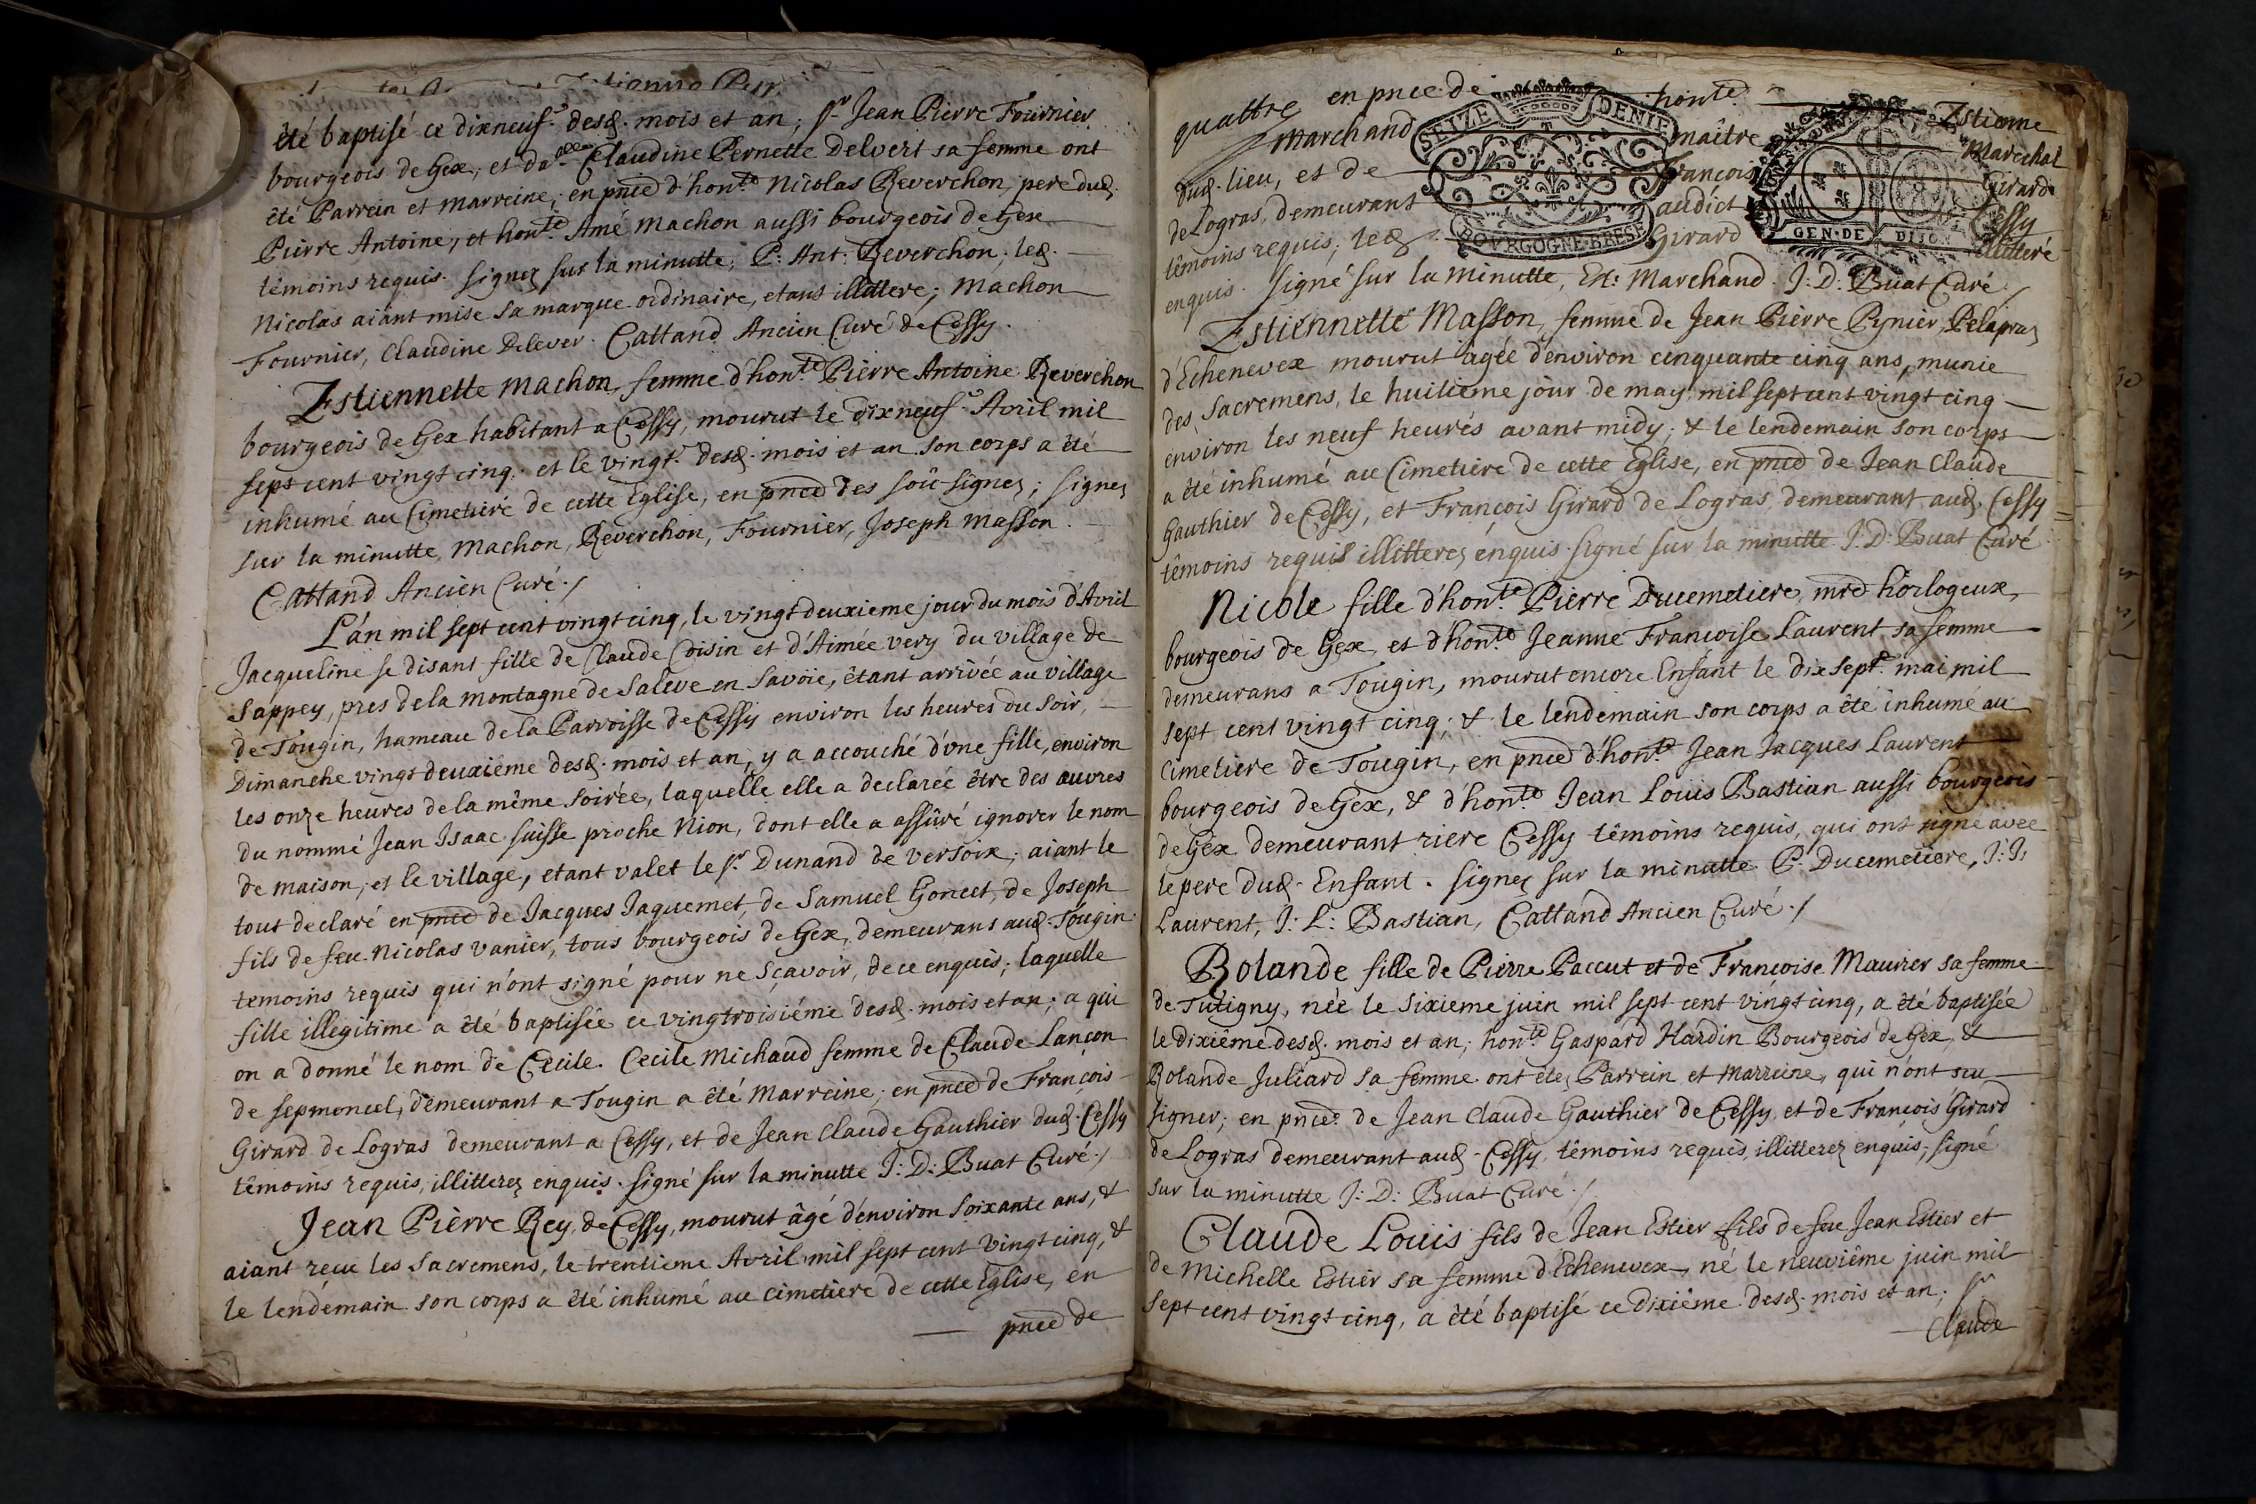 été baptisé ce dixneuf.e desd. mois et an; sr Jean Pierre Fournier
bourgeois de Gex, et dalle Claudine Pernette Delvert sa femme ont
été Parrein et marreine; en pnce d'honte Nicolas Reverchon, pere dud.
Pierre Antoine, et honte Amé Machon aussi bourgeois de Gex
témoins requis. signez sur la minutte; P: Ant: Reverchon; led.
Nicolas aiant mise sa marque ordinaire, etans illittere; Machon
Fournier, Claudine Delever. Cattand Ancien Curé de Cessy.
Estiennette Machon, femme d'honte Pierre Antoine Reverchon
bourgeois de Gex habitant a Cessy, mourut le dixneuf.e Avril mil
sept cent vingt cinq. et le vingt.e desd. mois et an son corps a été
inhumé au Cimetiére de cette Eglise, en pnce des soûsignez; signez
sur la minutte, Machon, Reverchon, Fournier, Joseph Masson.
Cattand Ancien Curé./
L'án mil sept cent vingt cinq, le vingt deuxieme jour du mois d'Avril
Jacqueline se disant fille de Claude Coisin et d'Aimée very du village de
Sappey, pres de la montagne de Saleve en Savoïe, étant arrivée au village
de Tougin, hameau de la Parroisse de Cessy environ les heures du soir,
Dimanche vingt deuxième desd. mois et an, y a accouché d'vne fille, environ
les onze heures de la même soirée, laquelle elle a declarée être des auvres
du nommé Jean Isaac suisse proche Nion, dont elle a assûré ignorer le nom
de maison, et le village, etant valet le sr Dunand de versoix; aiant le
tout declaré en pnce de Jacques Jaquemet, de Samuel Goncet, de Joseph
fils de feu Nicolas vanier, tous bourgeois de Gex, demeurans aud. Tougin
temoins requis qui n'ont signé pour ne sçavoir, de ce enquis; laquelle
fille illegitime a été baptisée ce vingtroisiéme desd. mois et an; a qui
on a donné le nom de Cecile. Cecile Michaud femme de Claude Lançon
de sepmoncel, demeurant a Tougin a été Marreine; en pnce de François
Girard de Logras demeurant a Cessy, et de Jean Claude Gauthier dud. Cessy
têmoins requis, illitterez enquis. signé sur la minutte J: D: Buat Curé./
Jean Pièrre Rey, de Cessy, mourut âgé d'environ soixante ans, &
aiant receu les sacremens, le trentieme Avril mil sept cent vingt cinq, &
le lendemain son corps a été inhumé au cimetiere de cette Eglise, en
pnce de
quattre en pnce de honte Estienne
Marchand maître Marechal
dud. lieu, et de François Girard
de Logras, demeurant audict Cessy
têmoins requis; led. Girard illitteré
SEIZE DENIE
BOVRGOGNE·BRESE
GEN·DE DIJON
enquis. signé sur la minutte, Et: Marchand. J: D: Buat Curé./
Estiénnette Masson, femme de Jean Pièrre Pynier, Pelapraz
d'Echenevex mourut agée d'environ cinquante cinq ans, munie
des sacremens, le huitième jour de may mil sept cent vingt cinq
environ les neuf heurés avant midy; & le lendemain son corps
a été inhumé au Cimetiére de cette Eglise, en pnce de Jean Claude
Gauthier de Cessy, et François Girard de Logras, demeurant aud. Cessy
têmoins requis illitterez enquis signé sur la minutte J: D: Buat Curé
Nicole fille d'honte Pièrre Ducemetiere, mre horlogeux,
bourgeois de Gex, et d'honte Jeanne Francoise Laurent sa femme
demeurans a Tougin, mourut encore Enfant le dix sept.e mai mil
sept cent vingt cinq; & le lendemain son corps a été inhumé au
cimetiere de Tougin, en pnce d'honte Jean Jacques Laurent
bourgeois de Gex, & d'honte Jean Louis Bastian aussi bourgeois
de Gex demeurant riere Cessy têmoins requis, qui ont signé avec
le pere dud. Enfant. signez sur la minutte P. Ducemetiere, J: J:
Laurent, J: L: Bastian, Cattand Ancien Curé./
Rolande fille de Pierre Paccut et de Francoise Maurier sa femme
de Tutigny, née le sixieme juin mil sept cent vingt cinq, a été baptisée
le dixiême desd. mois et an; honte Gaspard Hardin Bourgeois de Gex, &
Rolande Juliard sa femme ont étez Parrein et Marreine, qui n'ont sçu
signer; en pnce de Jean Claude Gauthier de Cessy et de François Girard
de Logras demeurant aud. Cessy, têmoins requis, illitterez enquis; signé
sur la minutte J: D: Buat Curé./
Claude Louis fils de Jean Estier fils de feu Jean Estier et
de Michelle Estier sa femme d'Echenevex, né le neuviême juin mil
sept cent vingt cinq, a été baptisé ce dixiême desd. mois et an; sr
Claude